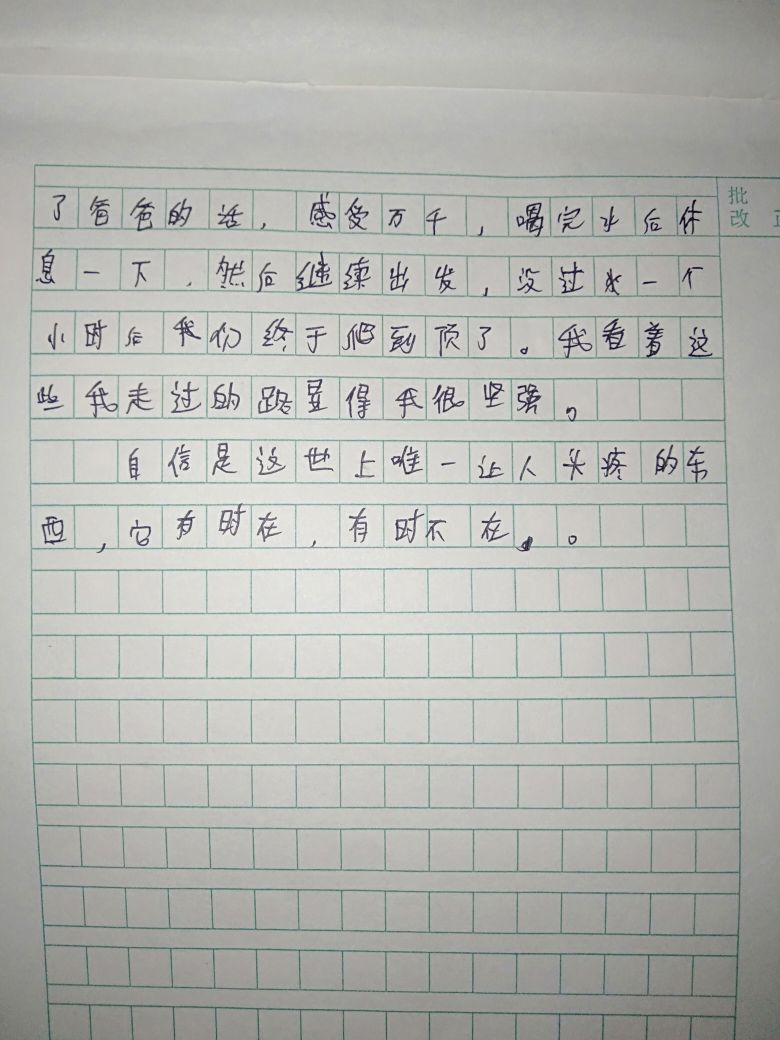 了爸爸的话，感受万千，喝完水后休
息一下，然后继续出发，没过半一个
小时后我们终于爬到顶了。我看着这
些我走过的路显得我很坚强。
自信是这世上唯一让人头疼的东
西，它有时在，有时不在。
批
改
正